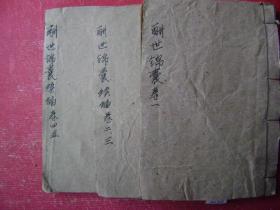 酬世錦囊卷一
酬世錦囊續編卷二三
酬世錦囊續編卷四五